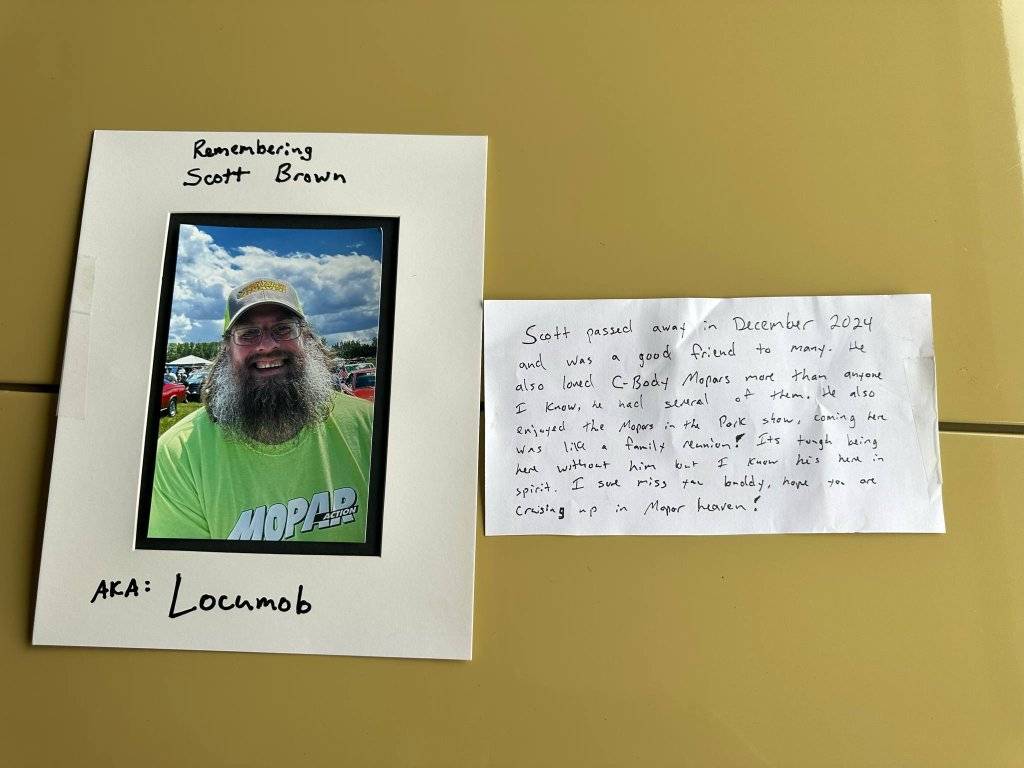 Remembering
Scott Brown
MOPAR
ACTION
AKA: Locumob
Scott passed away in December 2024
and was a good friend to many. He
also loved C-Body Mopars more than anyone
I know, he had several of them. He also
enjoyed the Mopars in the Park show, coming here
was like a family reunion! Its tough being
here without him but I know he's here in
spirit. I sure miss you buddy, hope you are
cruising up in Mopar heaven!